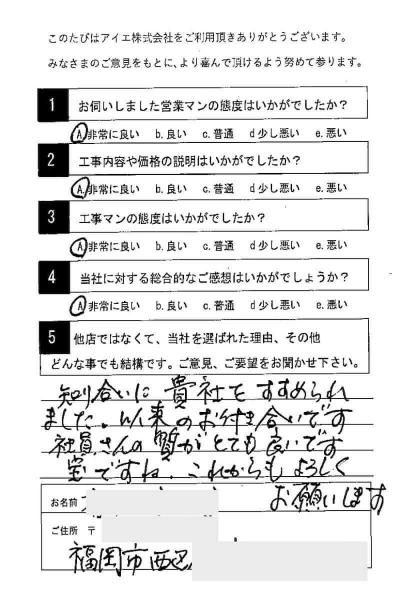 このたびはアイエ株式会社をご利用頂きありがとうございます。
みなさまのご意見をもとに、より喜んで頂けるよう努めて参ります。
1 お伺いしました営業マンの態度はいかがでしたか?
A.非常に良い b.良い c.普通 d少し悪い e.悪い
2 工事内容や価格の説明はいかがでしたか?
A.非常に良い b.良い c.普通 d少し悪い e.悪い
3 工事マンの態度はいかがでしたか?
A.非常に良い b.良い c.普通 d少し悪い e.悪い
4 当社に対する総合的なご感想はいかがでしょうか?
A.非常に良い b.良い c.普通 d少し悪い e.悪い
5 他店ではなくて、当社を選ばれた理由、その他
どんな事でも結構です。ご意見、ご要望をお聞かせ下さい。
知り合いに貴社をすすめられ
ました。以来のお付き合いです
社員さんの質がとても良いです
宝ですね。これからもよろしく
お願いします
お名前
ご住所 〒
福岡市西区